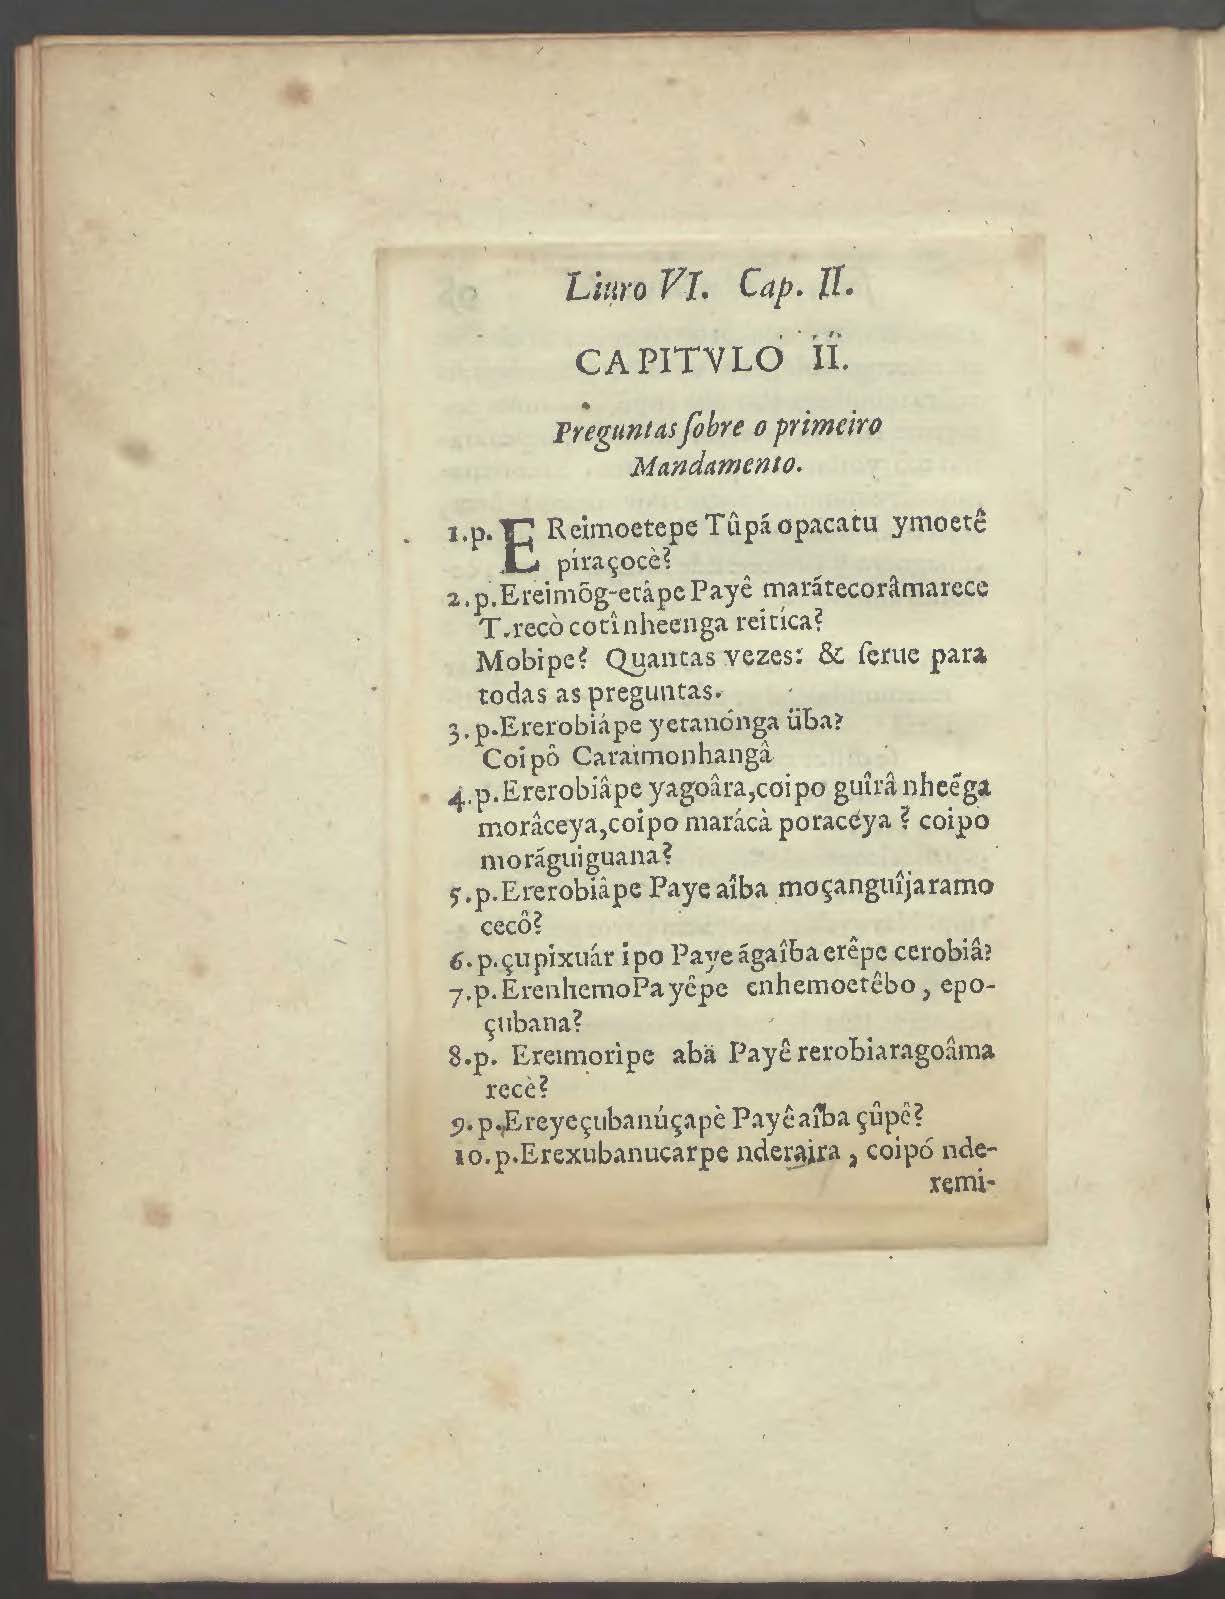 Liuro VI. Cap. II.
CAPITVLO II.
Preguntas ſobre o primeiro
Mandamento.
1.p. EReimoetepe Tûpá opacatu ymoetê
píraçocè?
2.p.Ereimõg-etápe Payê marátecorâmarece
T.recò cotî nheenga reitíca?
Mobipe? Quantas vezes: & ſerue para
todas as preguntas.
3.p.Ererobiápe yetanónga üba?
Coipô Caraimonhangâ
4.p.Ererobiâpe yagoâra,coipo guîrâ nheẽga
morâceya,coipo marácà poraceya ? coipo
moráguiguana?
5.p.Ererobiâpe Paye aîba moçanguîjaramo
cecô?
6.p.çupixuár ipo Paye ágaîba erêpe cerobiâ?
7.p.ErenhemoPayêpe enhemoetêbo, epo-
çubana?
8.p. Ereimoripe abä Payê rerobiaragoâma
recè?
9.p.Ereyeçubanúçapè Payê aîba çûpê?
10.p.Erexubanucarpe nderaira, coipó nde-
remi-